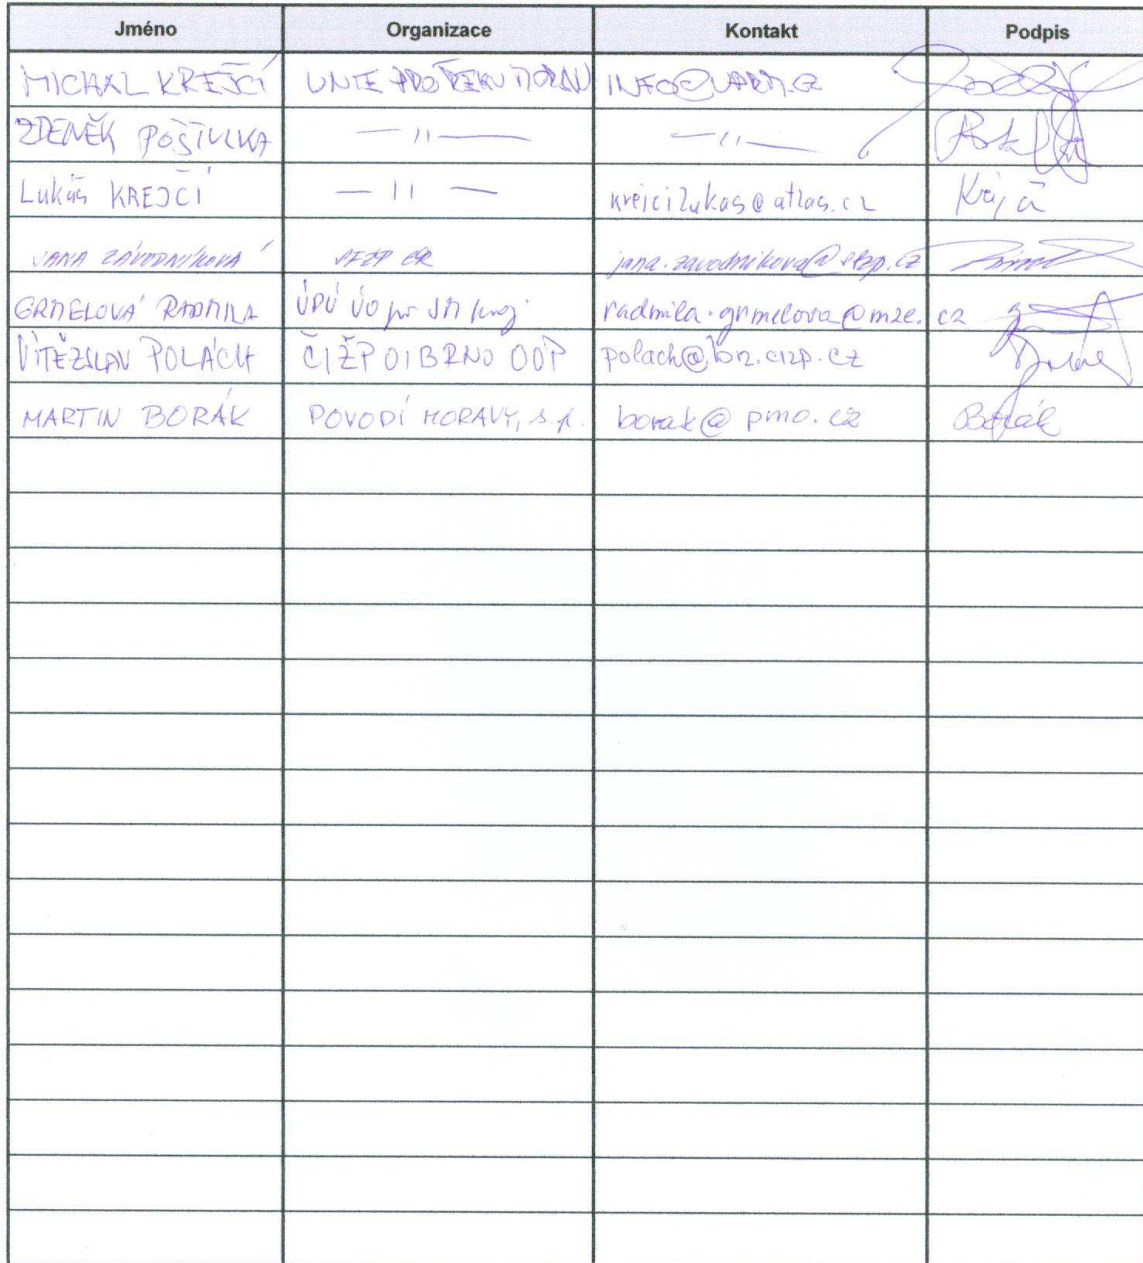 Jméno Organizace Kontakt Podpis
MICHAL KREJČÍ UNIE PRO ŘEKU MORAVU INFO@UPRM.CZ
ZDENĚK POŠTULKA — 11 — — 11 —
Lukáš KREJČÍ — 11 — krejcilukas@atlas.cz Krejčí
JANA ZÁVODNÍKOVÁ SFŽP ČR jana.zavodnikova@sfzp.cz
GRMELOVÁ RADMILA ÚPÚ ÚO pro JM kraj radmila.grmelova@mze.cz
VÍTĚZSLAV POLÁCH ČIŽP OI BRNO OOP polach@bn.cizp.cz
MARTIN BORÁK POVODÍ MORAVY, s.p. borak@pmo.cz Borák